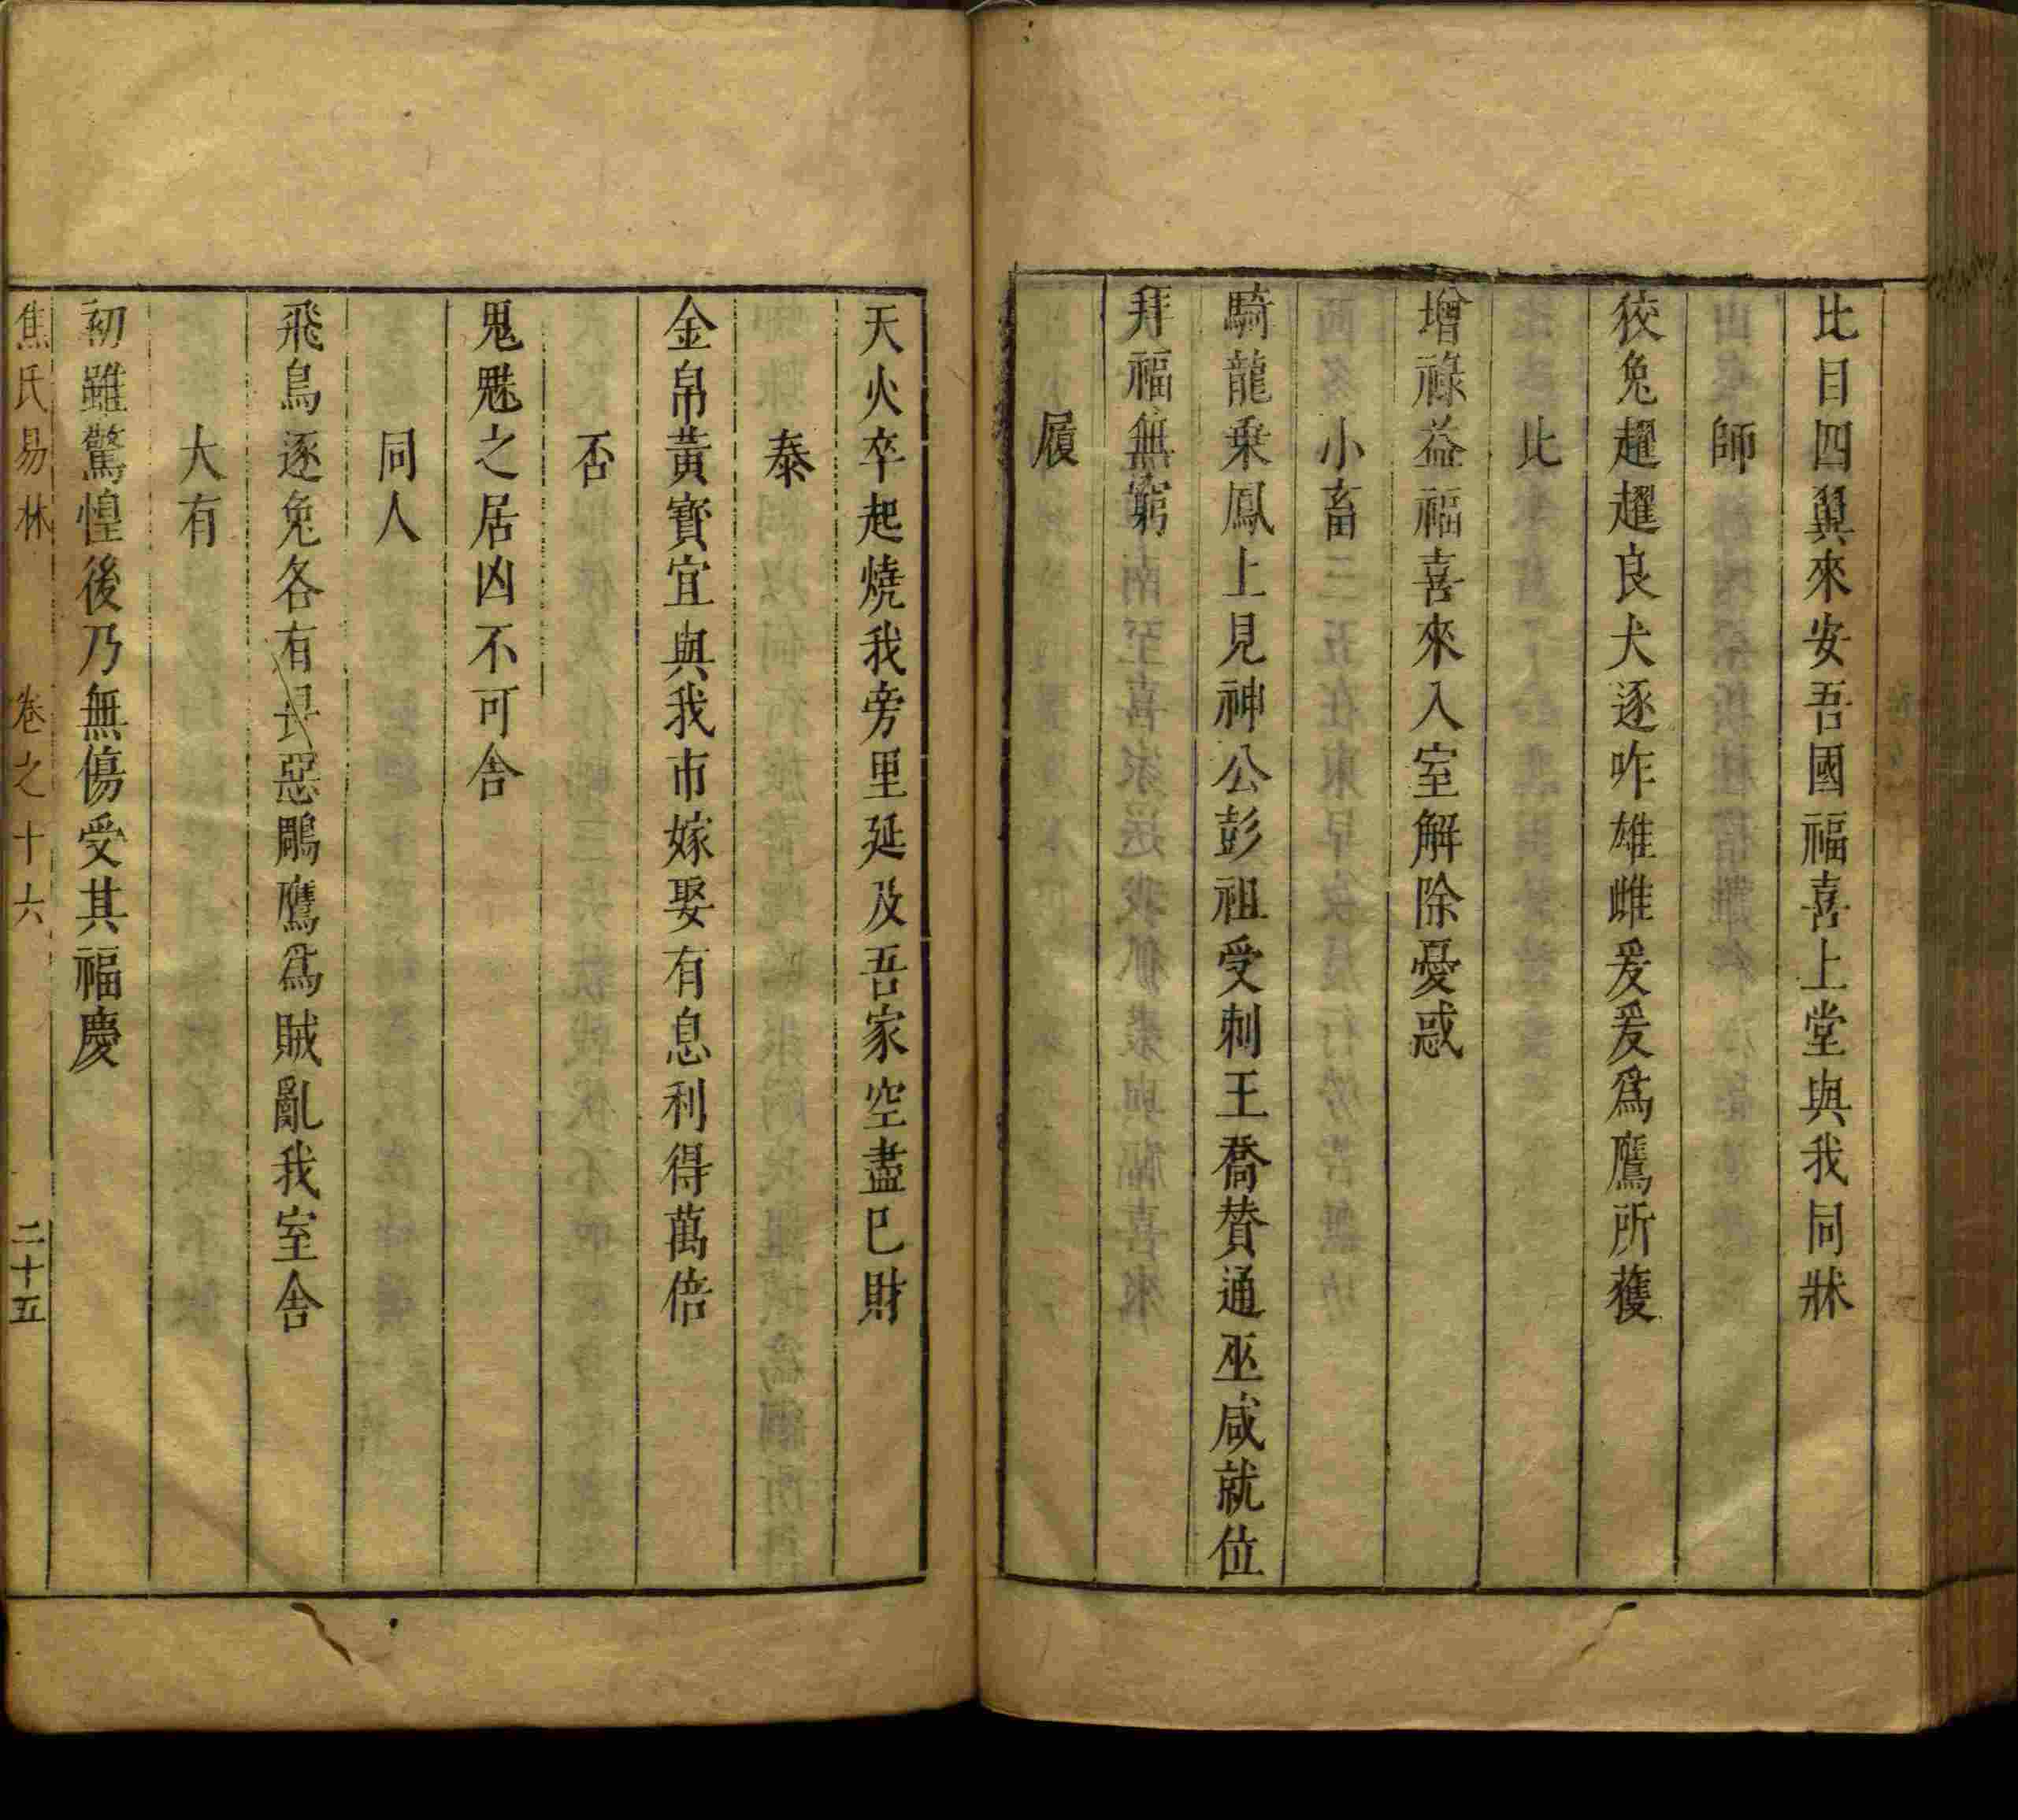 比目四翼來安吾國福喜上堂與我同牀
師
狡兔趯趯良犬逐咋雄雌爰爰爲鷹所獲
比
增祿益福喜來入室解除憂惑
小畜
騎龍乗鳳上見神公彭祖受刺王喬賛通巫咸就位
拜福無窮
履
天火卒起燒我旁里延及吾家空盡巳財
泰
金帛黃寳宜與我市嫁娶有息利得萬倍
否
鬼魅之居凶不可舎
同人
飛鳥逐兔各有畏惡鵰鷹爲賊亂我室舎
大有
初雖驚惶後乃無傷受其福慶
焦氏易林 卷之十六 二十五